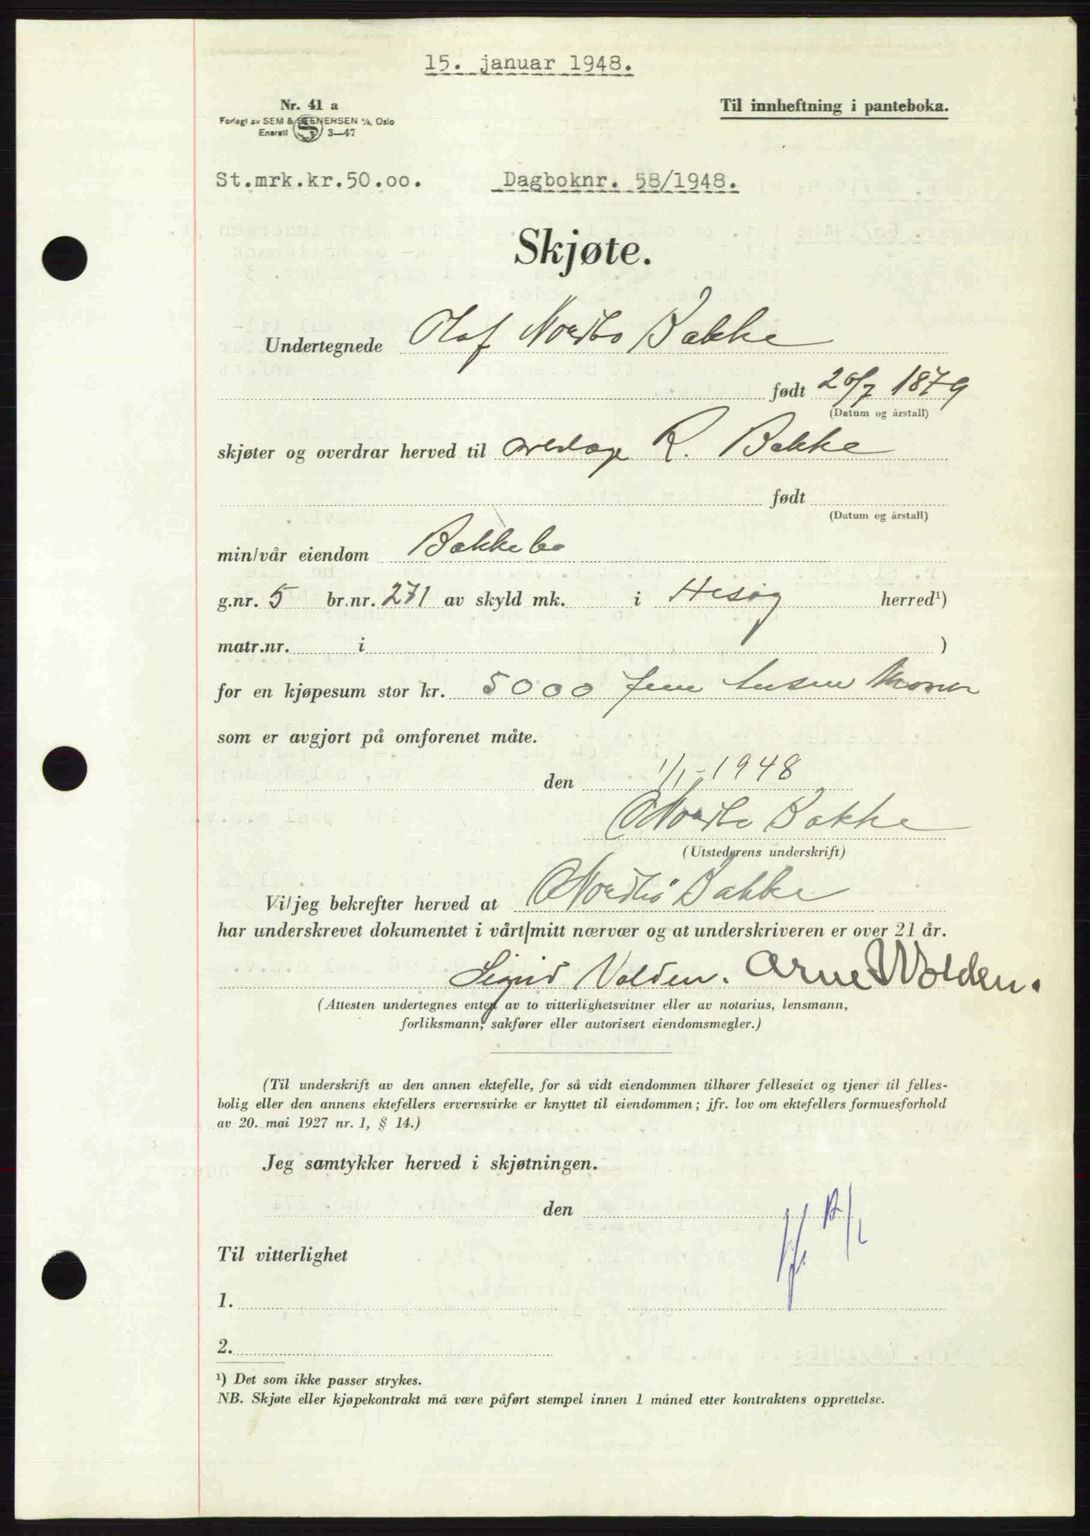 15. januar 1948.
Nr. 41 a
Til innheftning i panteboka.
Forlagt av SEM & STENERSEN A/S, Oslo
Enerett 3—47
St.mrk.kr.50.oo. Dagboknr. 58/1948.
Skjøte.
Undertegnede Olaf Nordbo Bakke
født 20/7 1879
(Datum og årstall)
skjøter og overdrar herved til R. Bakke
født
(Datum og årstall)
min/vår eiendom Bakkebo
g.nr. 5 br.nr. 271 av skyld mk. i Hisøy herred¹)
matr.nr. i )
for en kjøpesum stor kr. 5000 fem tusen kroner
som er avgjort på omforenet måte.
den 1/1-1948
O Nordbo Bakke
(Utstederens underskrift)
Vi/jeg bekrefter herved at O Nordbo Bakke
har underskrevet dokumentet i vårt/mitt nærvær og at underskriveren er over 21 år.
Sigrid Volden. Arne Wolden.
(Attesten undertegnes enten av to vitterlighetsvitner eller av notarius, lensmann,
forliksmann, sakfører eller autorisert eiendomsmegler.)
(Til underskrift av den annen ektefelle, for så vidt eiendommen tilhører felleseiet og tjener til felles-
bolig eller den annens ektefellers ervervsvirke er knyttet til eiendommen; jfr. lov om ektefellers formuesforhold
av 20. mai 1927 nr. 1, § 14.)
Jeg samtykker herved i skjøtningen.
den
Til vitterlighet
1.
2.
¹) Det som ikke passer strykes.
NB. Skjøte eller kjøpekontrakt må være påført stempel innen 1 måned etter kontraktens opprettelse.